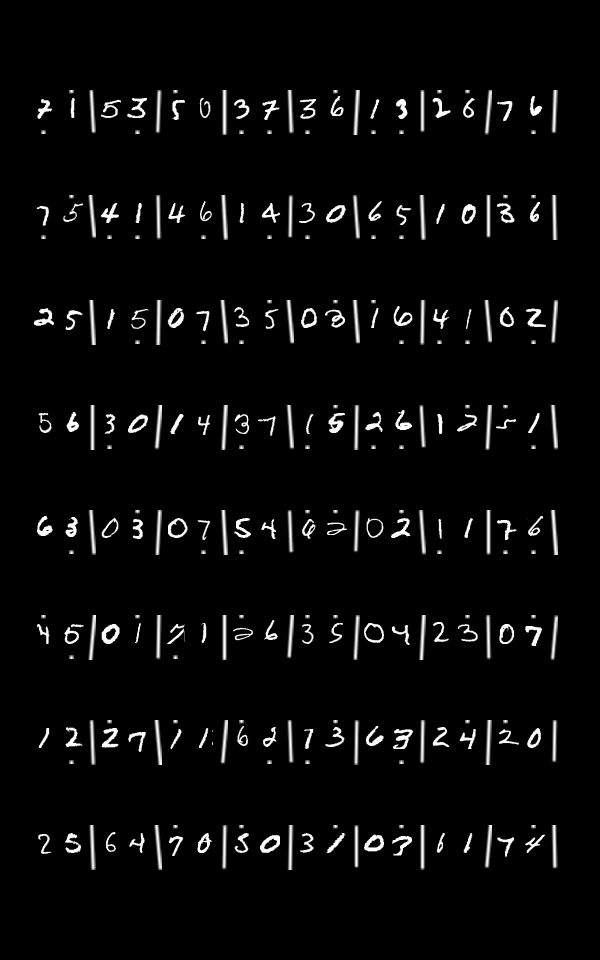 7 1 | 5 3 | 5 0 | 3 7 | 3 6 | 1 3 | 2 6 | 7 6 |
7 5 | 4 1 | 4 6 | 1 4 | 3 0 | 6 5 | 1 0 | 3 6 |
2 5 | 1 5 | 0 7 | 3 5 | 0 3 | 1 6 | 4 1 | 0 2 |
5 6 | 3 0 | 1 4 | 3 7 | 1 5 | 2 6 | 1 2 | 5 1 |
6 3 | 0 3 | 0 7 | 5 4 | 6 2 | 0 2 | 1 1 | 7 6 |
4 5 | 0 1 | 5 1 | 2 6 | 3 5 | 0 4 | 2 3 | 0 7 |
1 2 | 2 7 | 1 1 | 6 2 | 7 3 | 6 3 | 2 4 | 2 0 |
2 5 | 6 4 | 7 0 | 5 0 | 3 1 | 0 3 | 6 1 | 7 4 |